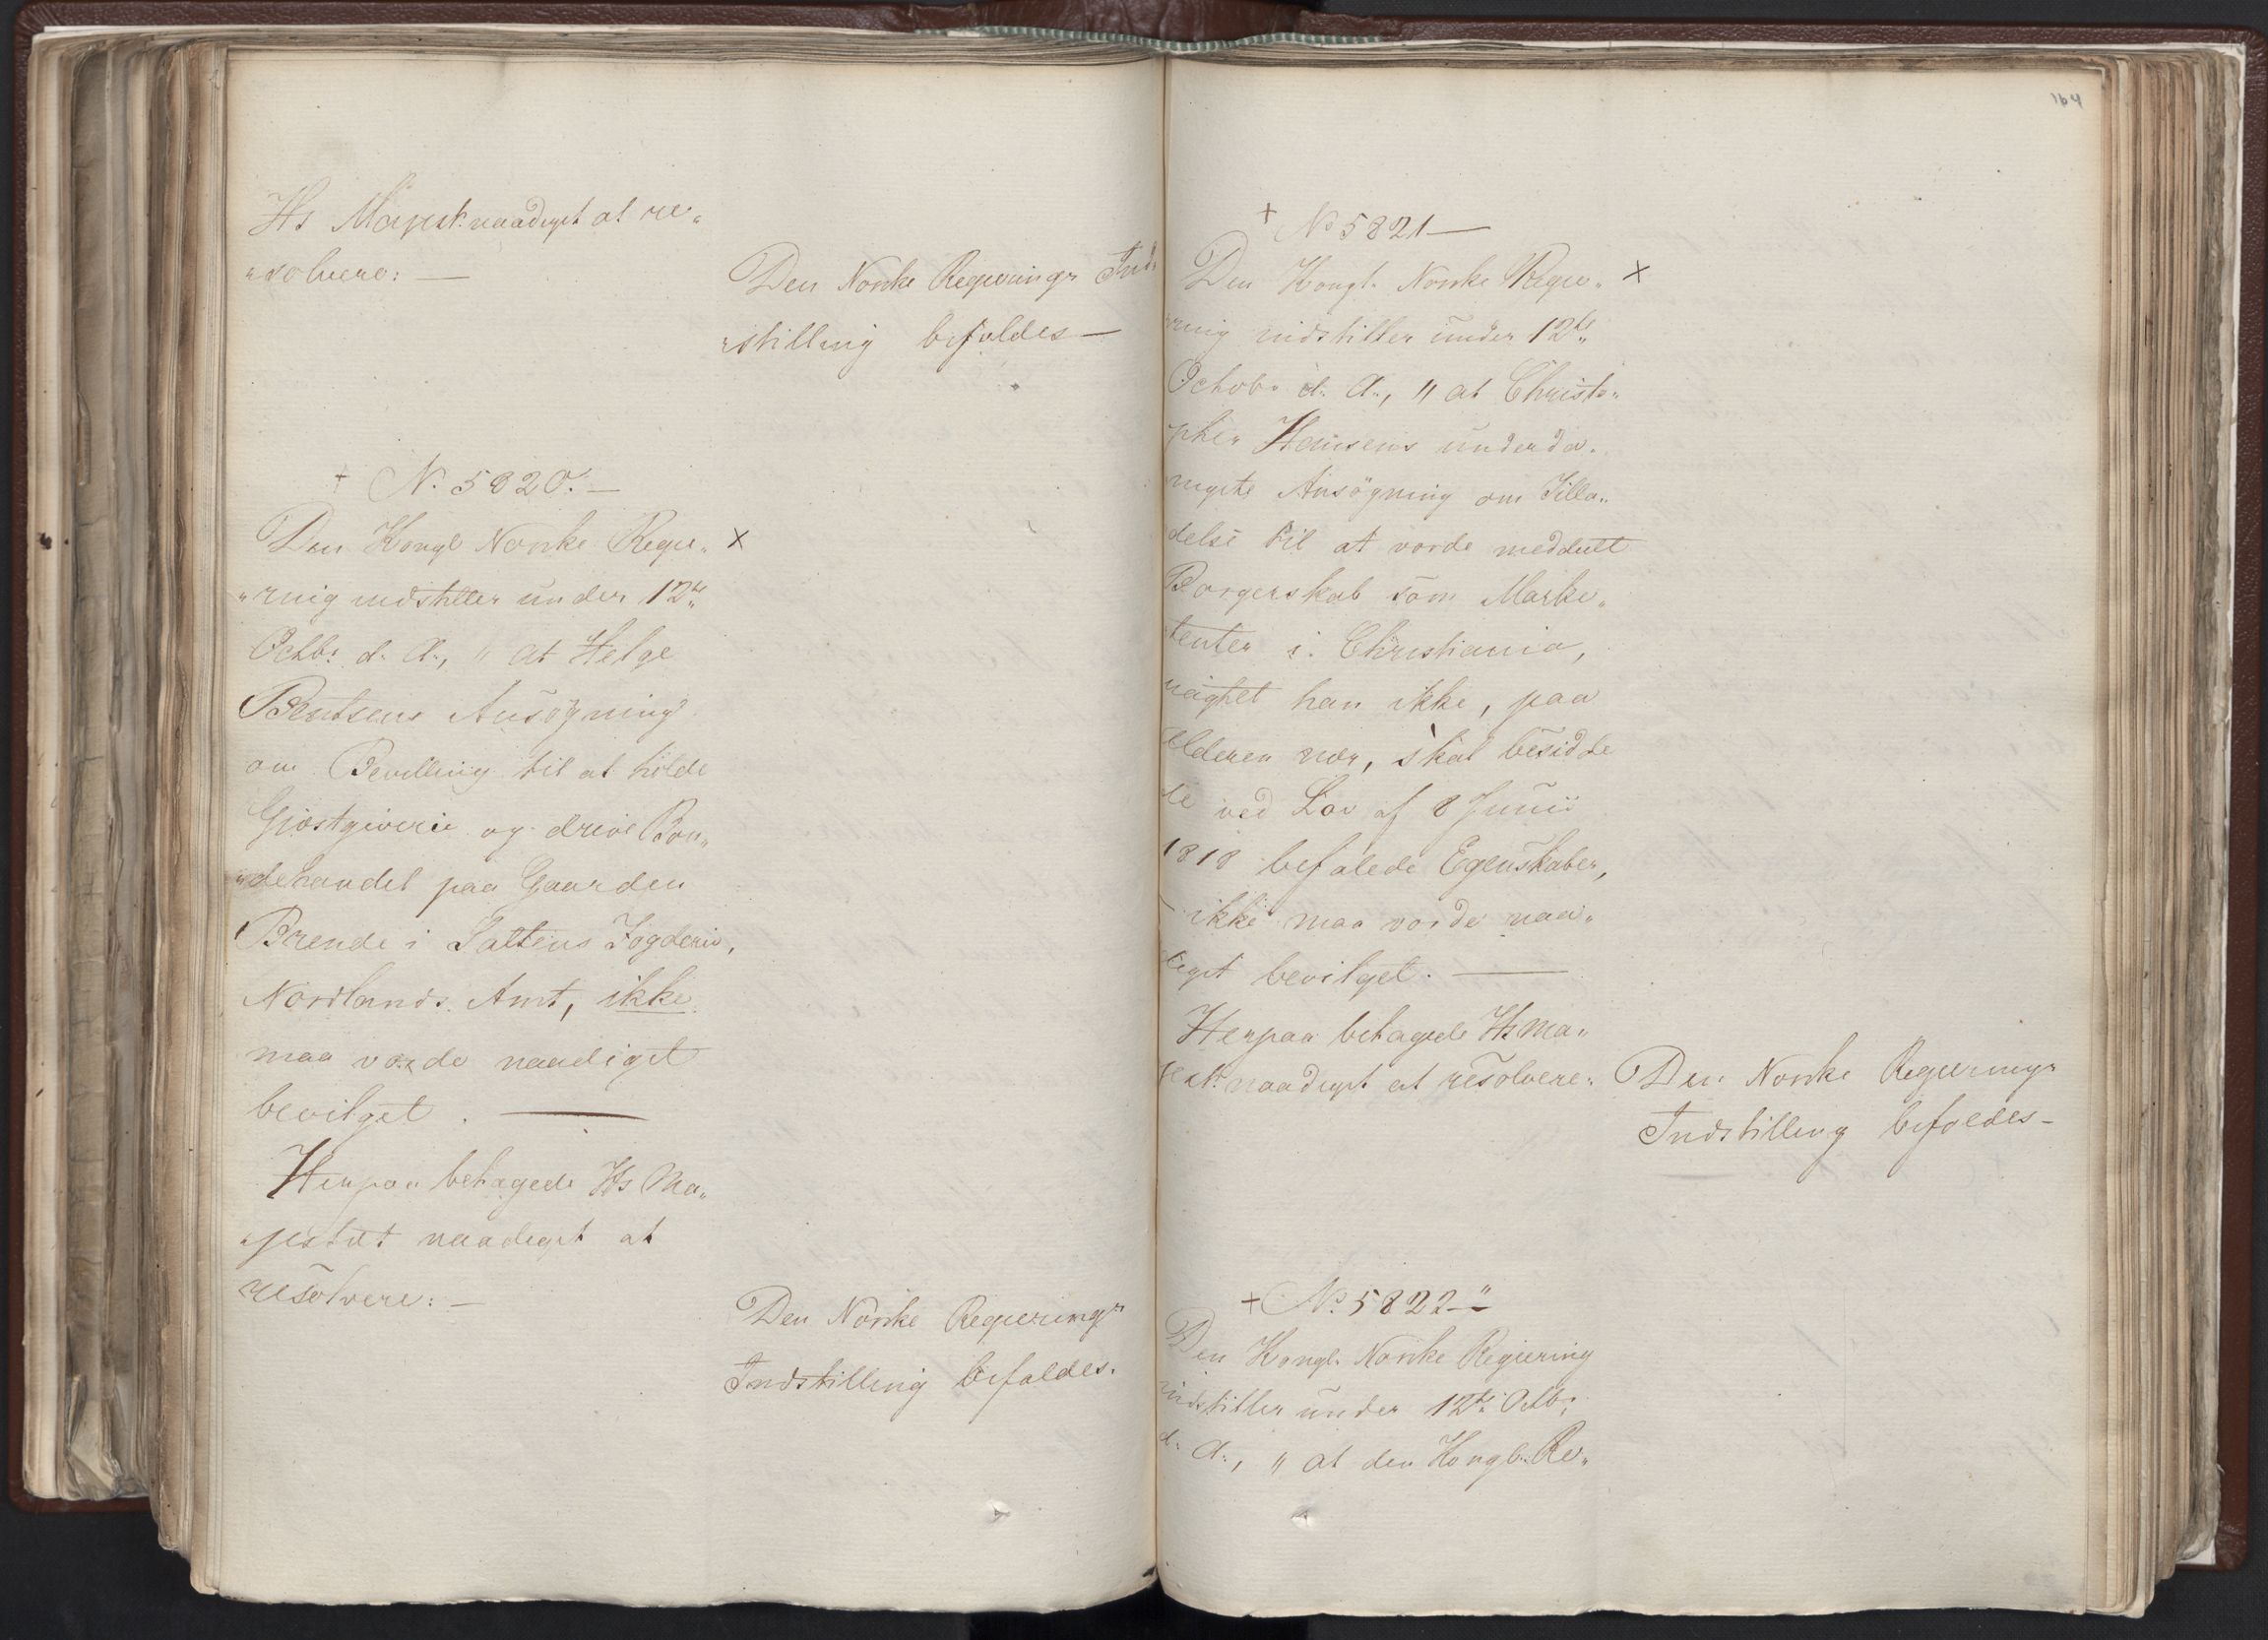 Hs Majest: naadigst at re„
„solvere: —
Den Norske Regierings Ind„
„stilling bifaldes —
+ N. 5820. —
Den Kongl Norske Regie„ x
„ring indstiller under 12te
Octbr d. A., „ at Helge
Bentsens Ansögning
om Bevilling til at holde
Giæstgiverie og drive Bon„
„dehandel paa Gaarden
Brende i Saltens Fogderie,
Nordlands Amt, ikke
maa vorde naadigst
bevilget. —
Herpaa behagede Hs Ma„
„jestæt naadigst at
resolvere: —
Den Norske Regierings
Indstilling bifaldes.
164
+ No 5821 —
Den Kongl. Norske Regie„ x
ring indstiller under 12te
Octob. d. A., „ at Christo„
pher Hansens underda„
nigste Ansögning om Tilla„
delse til at vorde meddeelt
Borgerskab som Marke„
tenter i Christiania,
uagtet han ikke, paa
Alderen nær, skal besidde
de ved Lov af 8 Junii
1818 befalede Egenskaber,
ikke maa vorde naa„
digst bevilget. —
Herpaa behagede Hs Ma„
jest: naadigst at resolvere:
Den Norske Regierings
Indstilling bifaldes —
+ No 5822 —
Den Kongl. Norske Regiering
indstiller under 12te Octbr
d. A., „ at den Kongl. Re„